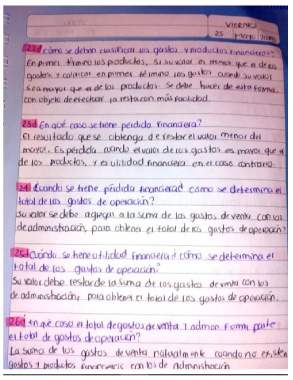 VIERNES
25
22¿cómo se deben clasificar los gastos y productos financieros?
En primer término los productos, si su valor es mayor que el de los
gastos, y colocar en primer término los gastos cuando su valor
sea mayor que el de los productos. Se debe hacer de esta forma
con objeto de efectuar la resta con más facilidad.
23¿En qué caso se tiene pérdida financiera?
El resultado que se obtenga de restar el valor menor del
mayor. Es pérdida cuando el valor de los gastos es mayor que el
de los productos, y es utilidad financiera en el caso contrario.
24¿Cuándo se tiene pérdida financiera? cómo se determina el
total de los gastos de operación?
Su valor se debe agregar a la suma de los gastos de venta con los
de administración, para obtener el total de los gastos de operación?
25¿Cuándo se tiene utilidad financiera cómo se determina el
total de los gastos de operación?
Su valor debe restar de la suma de los gastos de venta con los
de administración para obtener el total de los gastos de operación.
26¿en qué caso el total de gastos de venta y admon. forma parte
el total de gastos de operación?
La suma de los gastos de venta naturalmente cuando no existen
gastos y productos financieros con los de administración